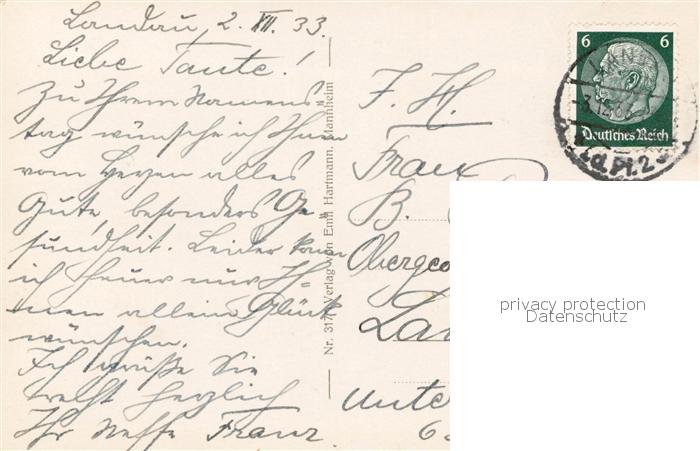 Landau, 2. XII. 33.
Liebe Tante!
Zu Ihrem Namens
tag wünsche ich Ihnen
vom Herzen alles
Gute, besonders Ge-
sundheit. Leider kann
ich heuer nur Ih-
nen allein Glück
wünschen.
Ich grüße Sie
recht herzlich
Ihr Neffe Franz.
Nr. 317 Verlag von Emil Hartmann, Mannheim
6 6
Deutsches Reich
LAN
-3.12.33
a.d.Pf. 2
F. H.
Franz
B.
Oberge
La
Unte
6
privacy protection
Datenschutz